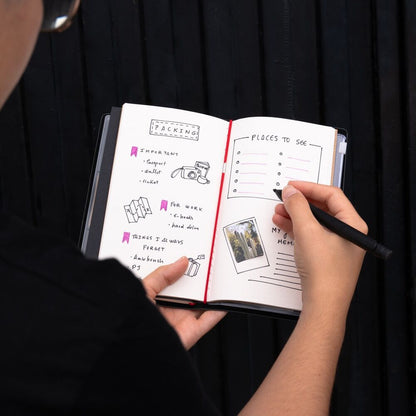 PACKING
IMPORTANT
• Passport
• wallet
• ticket
FOR WORK
• hard drive
THINGS I ALWAYS
FORGET
PLACES TO SEE
MY